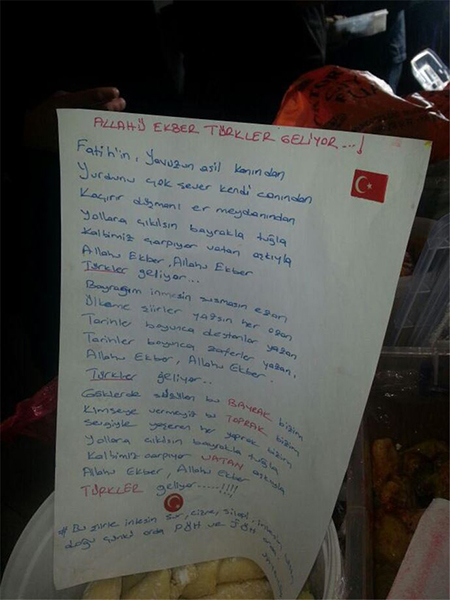 ALLAHÜ EKBER TÜRKLER GELİYOR...!
Fatih'in, Yavuzun asil kanından
Yurdunu çok sever kendi canından
Kaçırır düşmanı er meydanından
Yollara çıkılsın bayrakla tuğla
Kalbimiz çarpıyor vatan aşkıyla
Allahu Ekber, Allahu Ekber
Türkler geliyor...
Bayrağım inmesin susmasın ezan
Ülkeme şiirler yazsın her ozan
Tarihler boyunca destanlar yazan
Tarihler boyunca zaferler yazan,
Allahu Ekber, Allahu Ekber.
Türkler geliyor...
Göklerde süzülen bu BAYRAK bizim
Kimseye vermeyiz bu TOPRAK bizim
Sevgiyle yeşeren her yaprak bizim
Yollara çıkılsın bayrakla tuğla
Kalbimiz çarpıyor VATAN aşkıyla
Allahu Ekber, Allahu Ekber
TÜRKLER geliyor.....!!!!
Bu şiirle inlesin Sur, cizre, silopi,
doğu çünkü orda PÖH ve JÖH